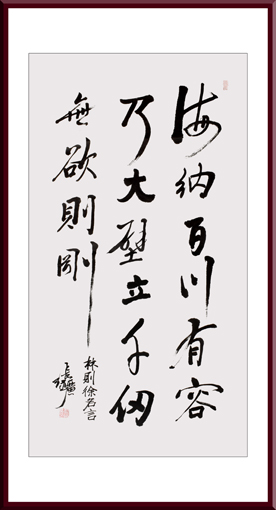 海納百川有容
乃大壁立千仞
無欲則剛
林則徐名言